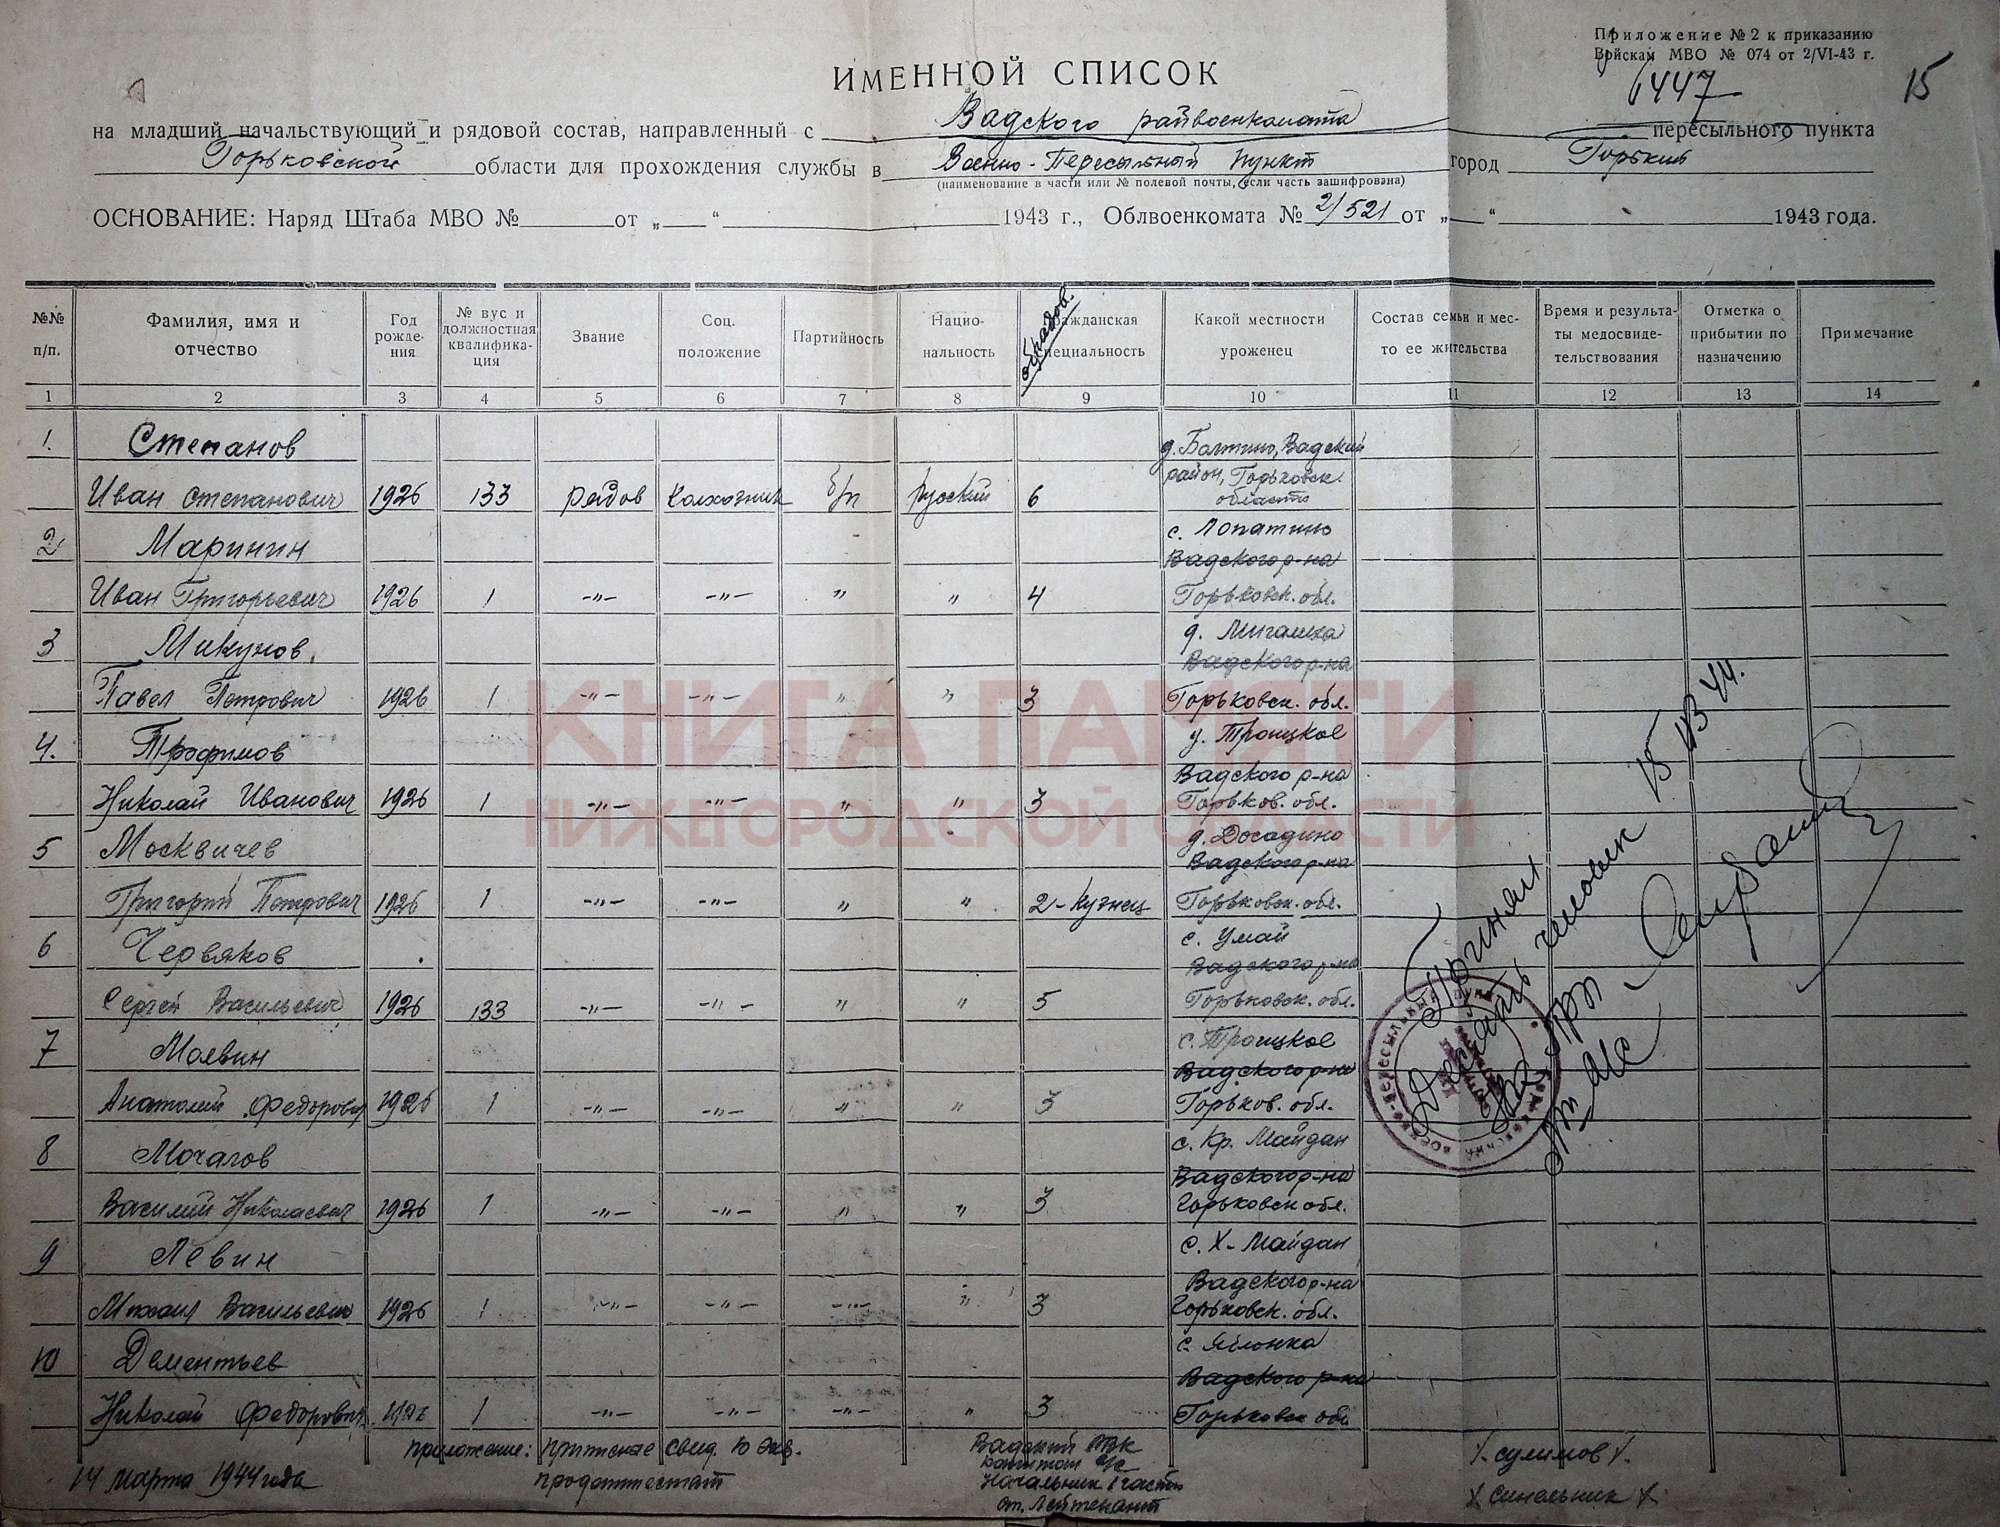 Приложение № 2 к приказанию
Войскам МВО № 074 от 2/VI-43 г.
6447
15
ИМЕННОЙ СПИСОК
на младший начальствующий и рядовой состав, направленный с Вадского райвоенкомата пересыльного пункта
Горьковской области для прохождения службы в Военно-Пересыльный пункт город Горький
(наименование в части или № полевой почты, если часть зашифрована)
ОСНОВАНИЕ: Наряд Штаба МВО № от „ “ 1943 г., Облвоенкомата № 2/521 от „ “ 1943 года.
№№ п/п. Фамилия, имя и отчество Год рожде- ния № вус и должностная квалифика- ция Звание Соц. положение Партийность Нацио- нальность образов. Гражданская специальность Какой местности уроженец Состав семьи и мес- то ее жительства Время и результа- ты медосвиде- тельствования Отметка о прибытии по назначению Примечание
1 2 3 4 5 6 7 8 9 10 11 12 13 14
1. Степанов д. Болтино, Вадский
район, Горьковск.
Иван Степанович 1926 133 рядов колхозник б/п русский 6 область
2 Маринин с. Лопатино
Вадского р-на
Иван Григорьевич 1926 1 -„- -„- „ „ 4 Горьковск. обл.
3 Микунов. д.
Вадского р-на
Павел Петрович 1926 1 -„- -„- „ „ 3 Горьковск. обл.
4. Трофимов Троицкое
Вадского р-на
Николай Иванович 1926 1 -„- -„- „ „ 3 Горьков. обл.
5 Москвичев д. Досадино
Вадского р-на
Григорий Петрович 1926 1 -„- -„- „ „ 2-Кузнец Горьковск. обл.
6 Червяков с. Умай
Вадского р-на
Сергей Васильевич 1926 133 -„- -„- „ „ 5 Горьковск. обл.
7 Молвин с. Троицкое
Вадского р-на
Анатолий Федорович 1926 1 -„- -„- „ „ 3 Горьков. обл.
8 Мочалов с. Кр. Майдан
Вадского р-на
Василий Николаевич 1926 1 -„- -„- „ „ 3 Горьковск обл.
9 Левин с. Х-Майдан
Вадского р-на
Михаил Васильевич 1926 1 -„- -„- -„- „ 3 Горьковск. обл.
10 Дементьев с. Яблонка
Вадского р-на
Николай Федорович 1926 1 -„- -„- -„- „ 3 Горьковск обл
Принял
Десять человек 15/III 44.
КНИГА ПАМЯТИ
НИЖЕГОРОДСКОЙ ОБЛАСТИ
приложение: приписные свид. 10 экз.
продаттестат
14 марта 1944 года
Вадский РВК
капитан
Начальник 1 части
ст. Лейтенант
/. Сулимов /.
/ Синельник /